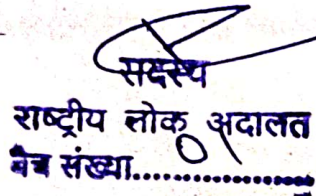 सदस्य
राष्ट्रीय लोक अदालत
बेंच संख्या..................